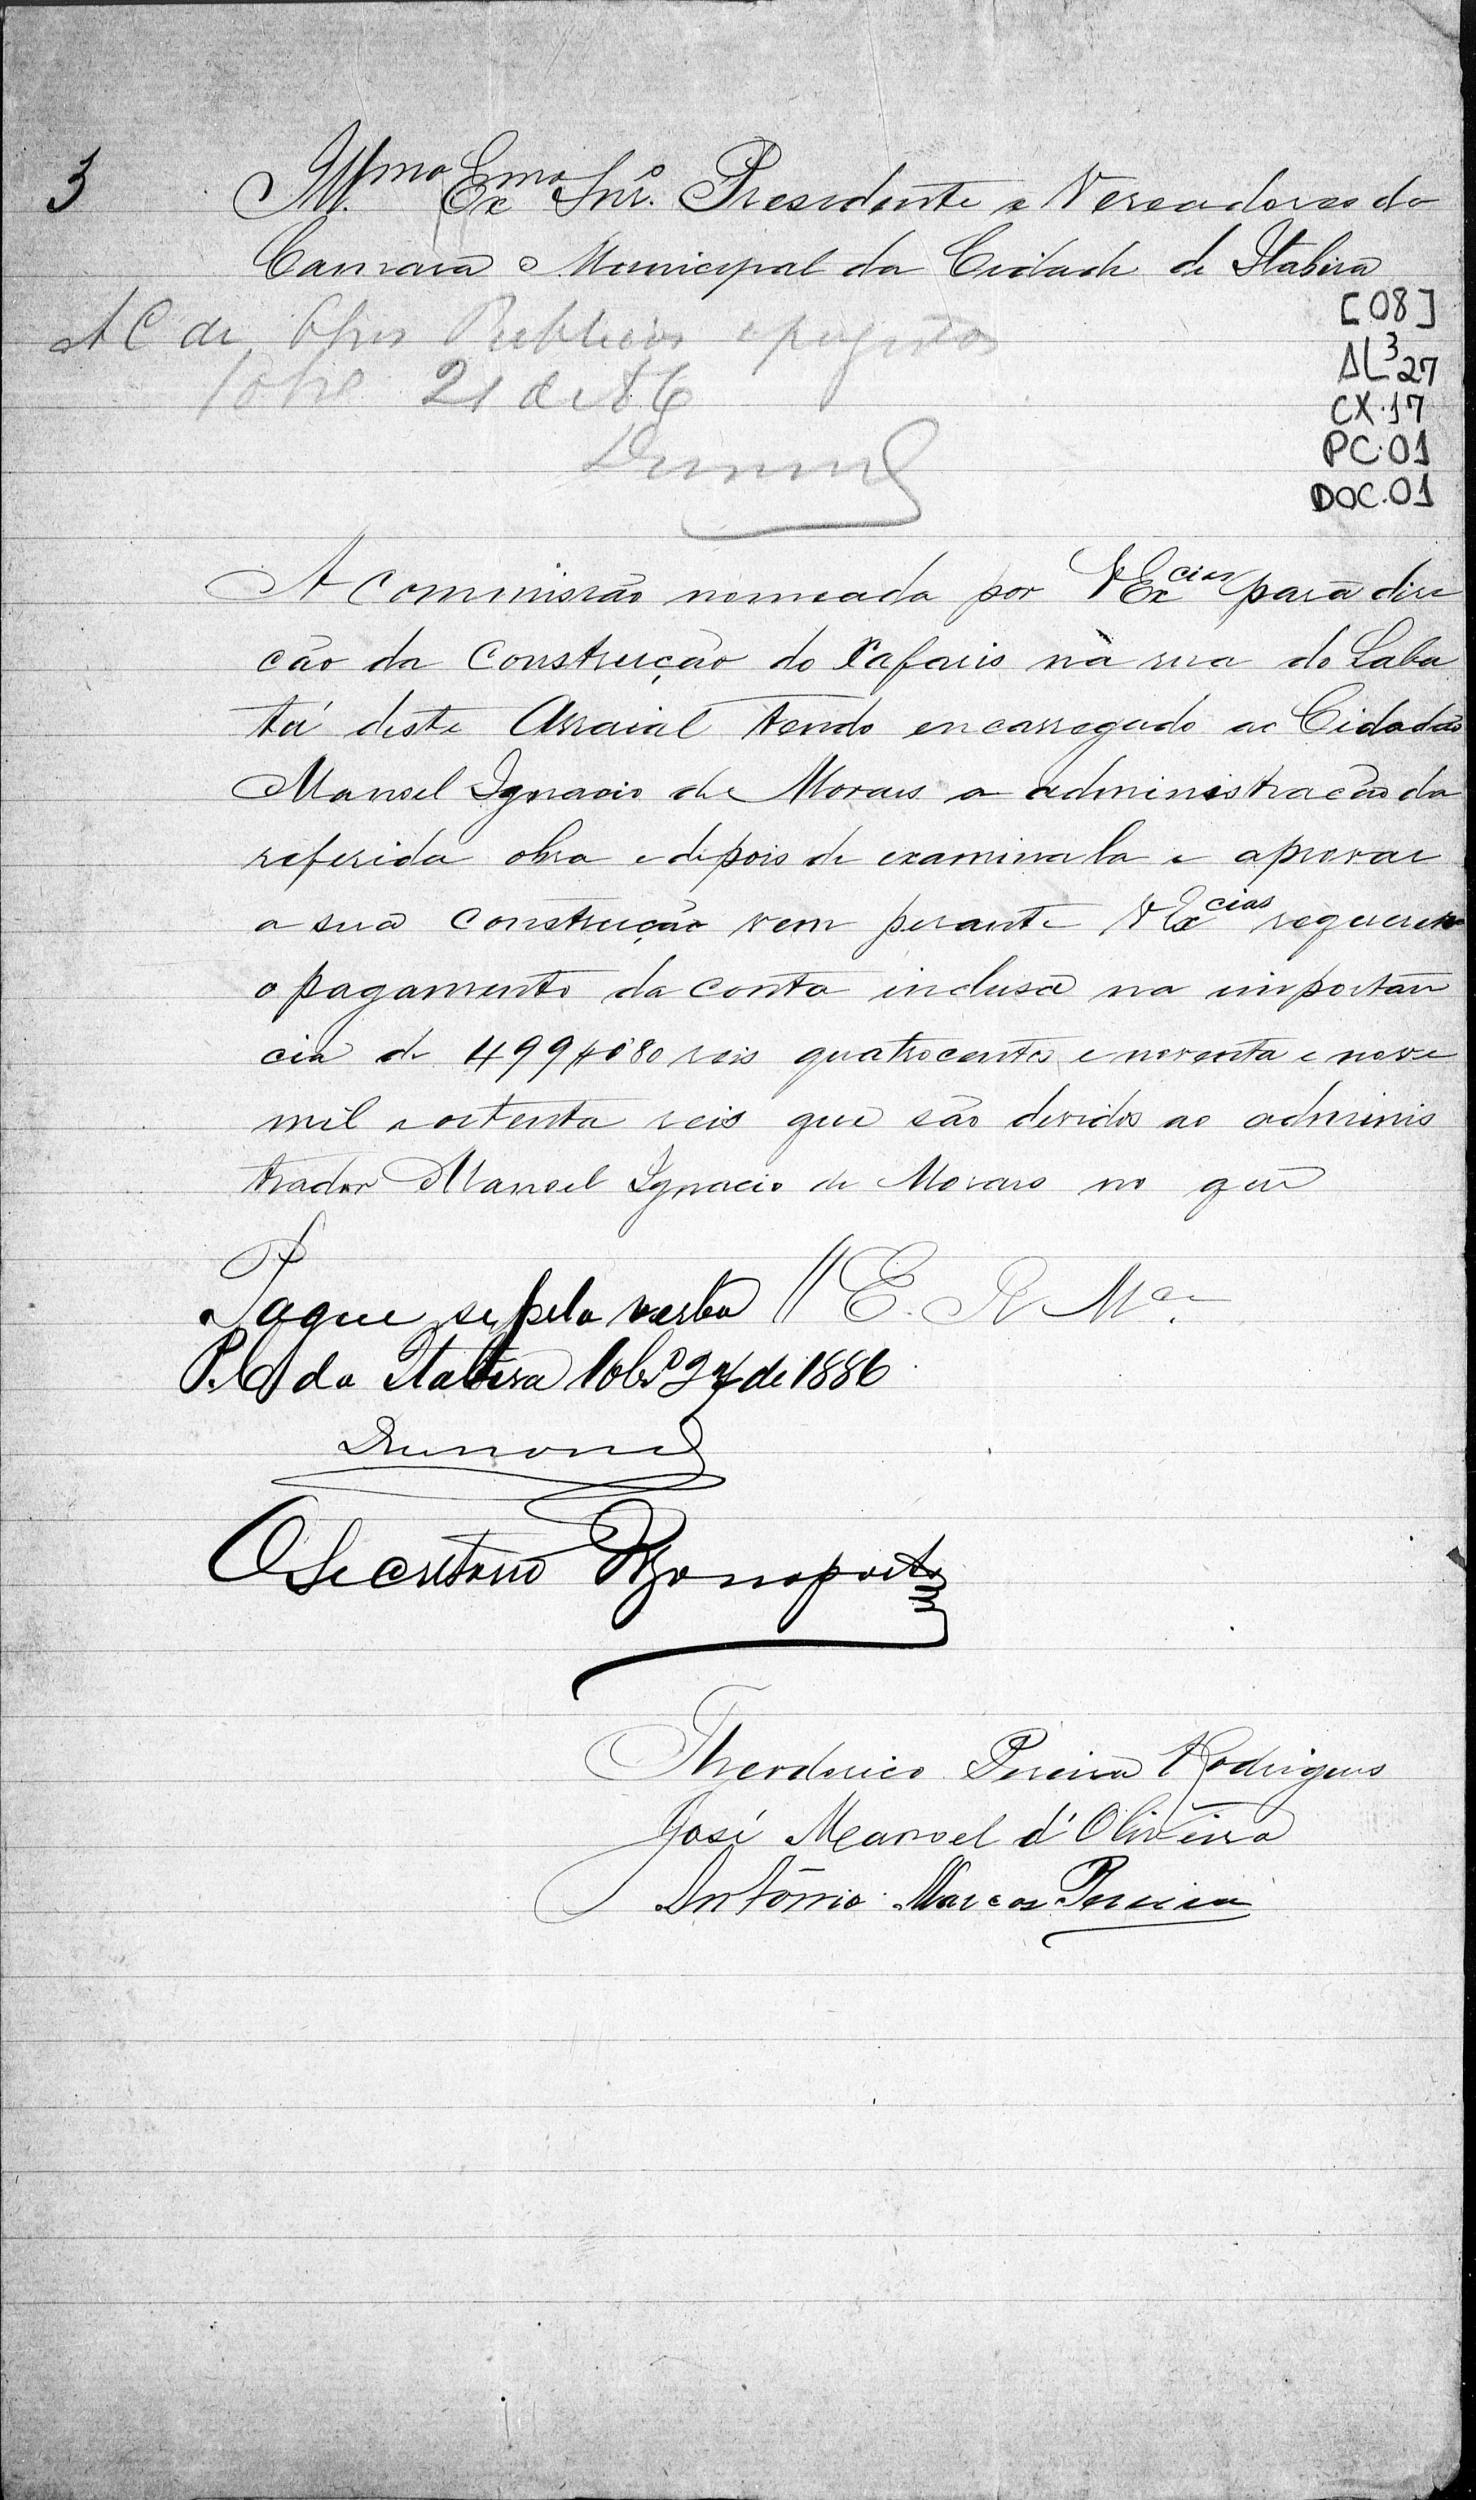 3
Illmo Exmo Snr. Presidente e Vereadores da
Camara Municipal da Cidade de Itabira
[08]
AL³27
CX.17
PC.01
DOC.01
A C de Obras Publicas
10bro 21 de 86
Drumond
A Commissão nomeada por VExcias para dire
cão da Construcção do Xafaris na rua do Laba
tá deste Arraial tendo encarregado ao Cidadão
Manoel Ignacio de Moraes a administracão da
referida obra e depois de examinala e aprovar
a sua construcção vem perante VExcias requerer
o pagamento da conta inclusa na importan
cia de 499$080 reis quatrocentos e noventa e nove
mil e oitenta reis que são devidos ao adminis
trador Manoel Ignacio de Moraes no que
E. R. Mce
Pague se pela verba //
P. C da Itabira 10bro 27 de 1886
Drumond
O Secretario Bonaparte
Theodorico Pereira Rodrigues
José Manoel d'Oliveira
Antônio Marcos Pereira